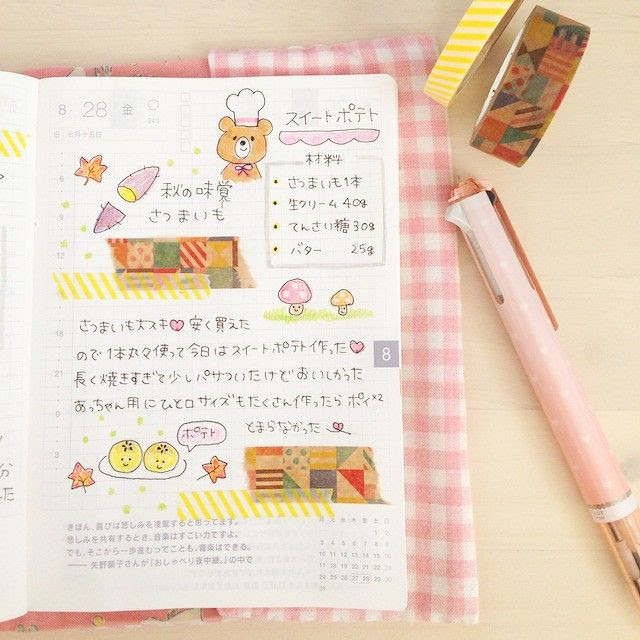 8 28 金
240
旧 七月十五日
スイートポテト
材料
・さつまいも1本
・生クリーム 40g
・てんさい糖 30g
・バター 25g
秋の味覚
さつまいも
6
9
12
さつまいも大スキ♥ 安く買えた
ので1本丸々使って今日はスイートポテト作った♥
長く焼きすぎて少しパサついたけどおいしかった
あっちゃん用にひと口サイズもたくさん作ったら ポイ×2
とまらなかった
8
18
21
0
3
ポテト
きほん、喜びは悲しみを凌駕すると思ってます。
悲しみを共有するとき、音楽はすごい力ですよ。
でも、そこから一歩進むってことも、音楽はできる。
── 矢野顕子さんが『おしゃべり夜中継。』の中で
月 火 水 木 金 土 日
1 2
3 4 5 6 7 8 9
10 11 12 13 14 15 16
17 18 19 20 21 22 23
24 25 26 27 28 29 30
31